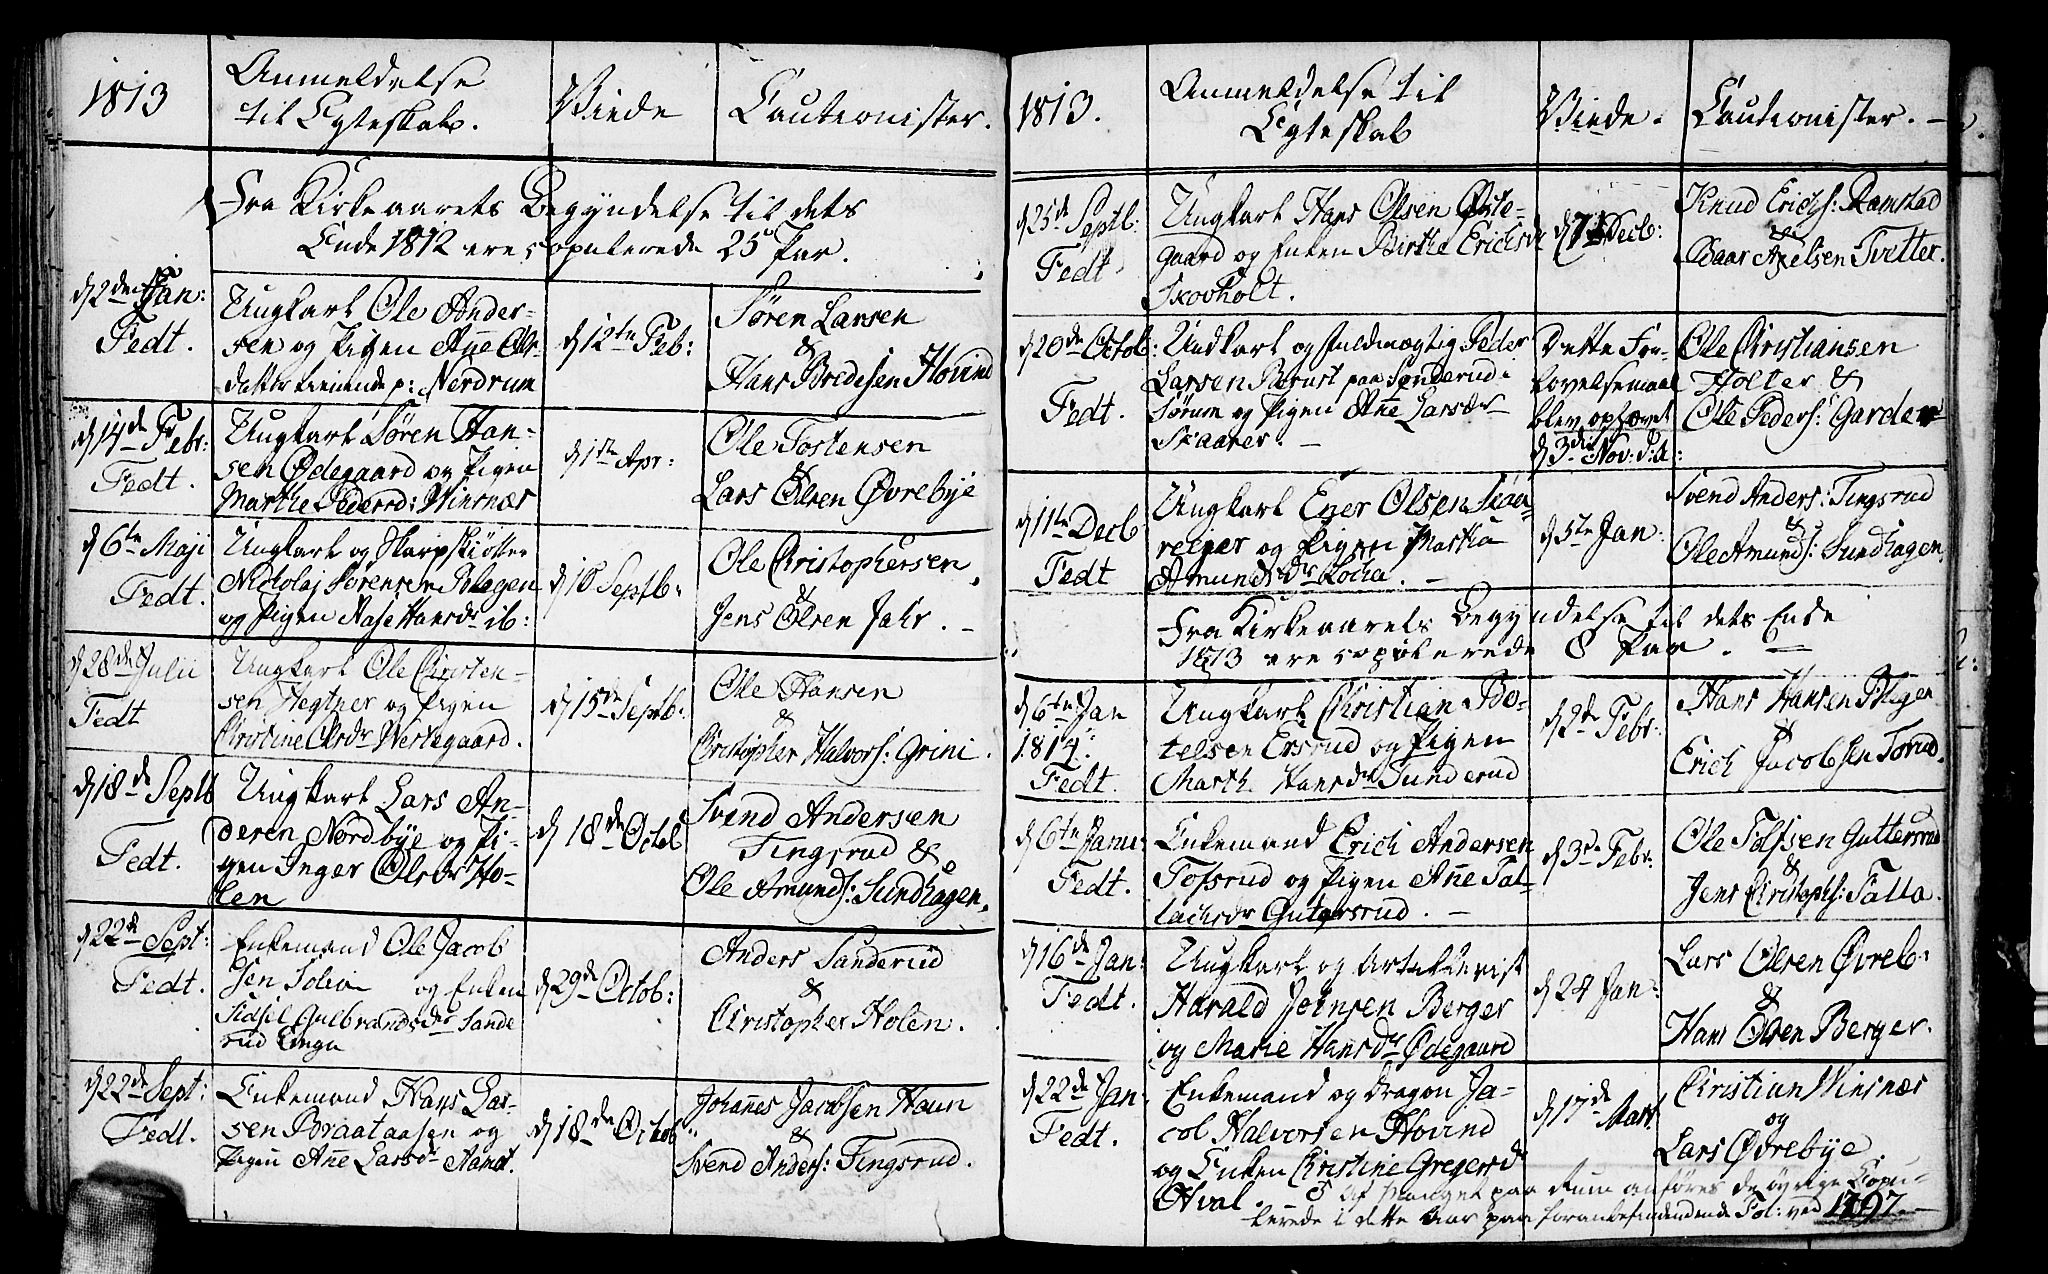 1813
Anmeldelse
til Egteskab.
Viede
Cautionister.
Fra Kirkeaarets Begyndelse til dets
Ende 1812 ere copulerede 25 Par.
d 2den Jan:
Fedt.
Ungkarl Ole Ander-
sen og Pigen Añe Ols-
datter tienende p: Nerdrum
d 12te Feb:
Sören Larsen
&
Hans Bredesen Hovind
d 14de Febr:
Fedt.
Ungkarl Sören Han-
sen Ødegaard og Pigen
Marthe Pedersd: Winsnæs
d 1te Apr:
Ole Tostensen
&
Lars Olsen Øvrebye
d 6te Maji
Fedt.
Ungkarl og Skarpskiötter
Nicholaj Sörensen Blegen
og Pigen Aase Hansdr ib:
d 10 Septb:
Ole Christophersen
&
Jens Olsen Jahr. -
d 28de Julii
Fedt
Ungkarl Ole Christen-
sen Hegtner og Pigen
Christine Olsdr Westegaard.
d 15de Septb:
Ole Hansen
&
Christopher Halvors: Grini.
d 18de Septb
Fedt.
Ungkarl Lars An-
dersen Nordbye og Pi-
gen Inger Olsdr Ho-
len
d 18de Octob
Svend Andersen
Tingsrud &
Ole Amunds: Sundhagen.
d 22de Sept:
Fedt.
Enkemand Ole Jacob
sen og Enken
Sidsel Gulbrandsdr Sande
rud
d 29de Octob:
Anders Sanderud
&
Christopher Holen.
d 22de Sept:
Fedt.
Enkemand Hans Lar-
sen Braataasen og
Pigen Añe Larsdr
d 18de Octob:
Johañes Jacobsen Haun
&
Svend Anders: Tingsrud.
1813.
Anmeldelse til
Egteskab
Viede.
Cautionister. -
d 25de Septb:
Fedt
Ungkarl Hans Olsen Øste-
gaard og Enken Birthe Erichsdr
Skovholt.
Decb:
Knud Erichs: Ramstad
&
Baar Axelsen Tvetter.
d 20de Octob:
Fedt.
Ungkarl og Fuldmægtig Peder
Larsen paa Sönderud i
Sörum og Pigen Añe Larsdr
Skaarer. -
Dette For-
lovelsemaal
blev ophævet
d 3die Nov: d: A:
Ole Christiansen
Holter &
Ole Peders: Garder
d 11te Decb
Fedt
Ungkarl Ener Olsen
og Pigen Martha
Amundsdr -
d 5te Jan:
Svend Anders: Tingsrud
&
Ole Amunds: Sundhagen.
Fra Kirkeaarets Begyndelse til dets Ende
1813 ere copulerede 8 Par. -
d 6te Jan
1814.
Fedt.
Ungkarl Christian Bo-
telsen Ersrud og Pigen
Marth. Hansdr Sunderud
d 2de Febr:
Hans Hansen Blegen
&
Erich Jacobsen Torud.
d 6te Janu:
Fedt.
Enkemand Erich Andersen
Tofsrud og Pigen Añe Tal-
lachsdr Gutersrud. -
d 3de Febr:
Ole Tolfsen Guttersrud
&
Jens Christophs: Falla.
d 16de Jan:
Fedt.
Ungkarl og Artillerist
Harald Jensen Berger
og Marie Hansdr Ødegaard
d 24 Jan:
Lars Olsen Øvreb:
&
Hans Olsen Berger.
d 22de Jan:
Fedt.
Enkemand og Dragon Ja-
cob Halvorsen Hovind
og Enken Christine Gregersdr
Hval.
d 17de Mart
Christian Winsnæs
og
Lars Øvrebye
Af Mangel paa Rum anföres de övrige Copu-
lerede i dette Aar paa foranbefindende Fol: ved 1797. -